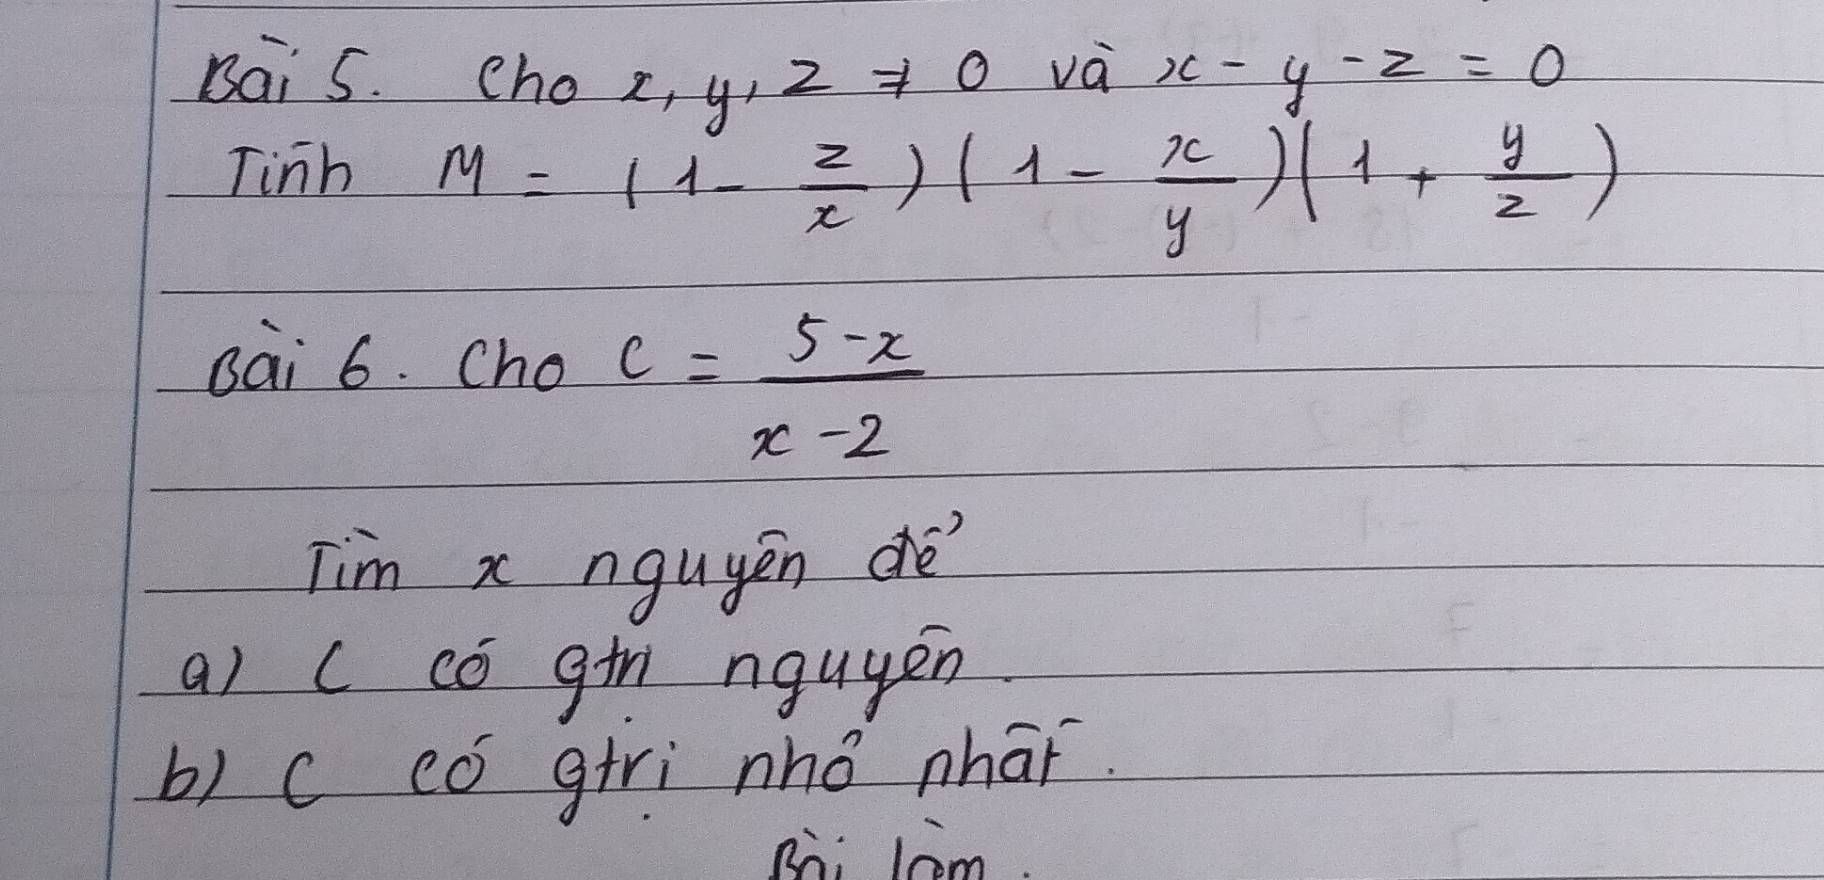 Bài 5. Cho x, y, z ≠ 0 và x - y - z = 0
Tính M = (1 - z/x)(1 - x/y)(1 + y/z)
Bài 6. Cho C = 5-x / x-2
Tìm x nguyên để
a) C có gtrị nguyên.
b) C có gtrị nhỏ nhất.
Bài làm.